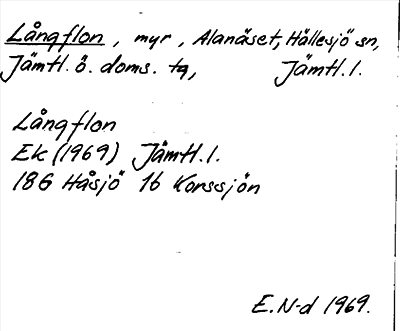 Långflon, myr, Alanäset, Hällesjö sn,
Jämtl. ö. doms. tg, Jämtl. l.
Långflon
Ek (1969) Jämtl. l.
18G Håsjö 1b Korssjön
E. N-d 1969.